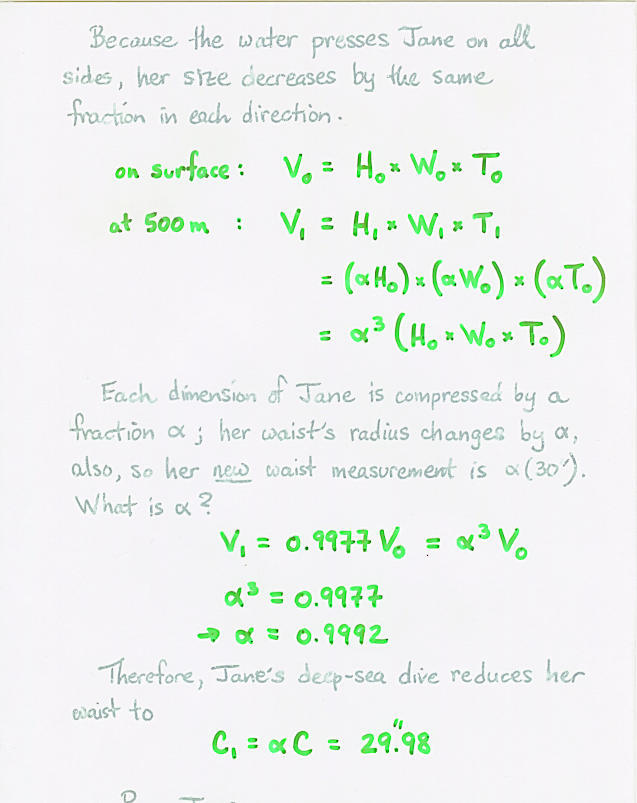 Because the water presses Jane on all
sides, her size decreases by the same
fraction in each direction.
on surface: V₀ = H₀ × W₀ × T₀
at 500 m : V₁ = H₁ × W₁ × T₁
= (αH₀) × (αW₀) × (αT₀)
= α³ (H₀ × W₀ × T₀)
Each dimension of Jane is compressed by a
fraction α ; her waist's radius changes by α,
also, so her new waist measurement is α(30").
What is α?
V₁ = 0.9977 V₀ = α³ V₀
α³ = 0.9977
→ α = 0.9992
Therefore, Jane's deep-sea dive reduces her
waist to
C₁ = αC = 29."98